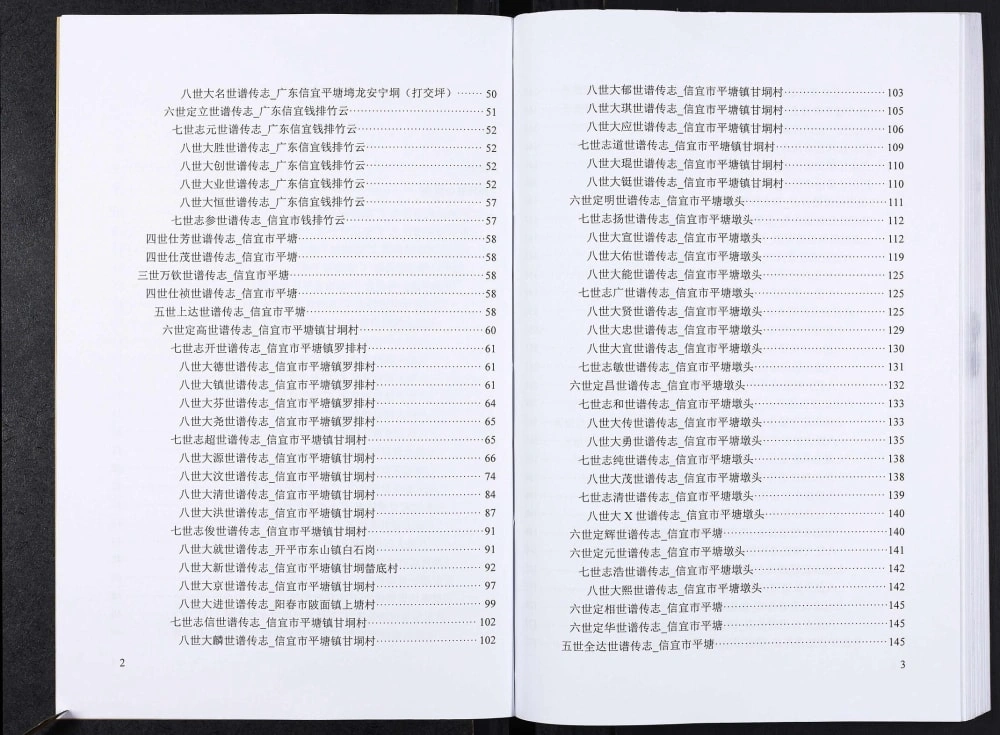 八世大名世谱传志_广东信宜平塘塆龙安宁垌（打交坪）…… 50
六世定立世谱传志_广东信宜钱排竹云…… 51
七世志元世谱传志_广东信宜钱排竹云…… 52
八世大胜世谱传志_广东信宜钱排竹云…… 52
八世大创世谱传志_广东信宜钱排竹云…… 52
八世大业世谱传志_广东信宜钱排竹云…… 52
八世大恒世谱传志_广东信宜钱排竹云…… 57
七世志参世谱传志_信宜市钱排竹云…… 57
四世仕芳世谱传志_信宜市平塘…… 58
四世仕茂世谱传志_信宜市平塘…… 58
三世万钦世谱传志_信宜市平塘…… 58
四世仕祯世谱传志_信宜市平塘…… 58
五世上达世谱传志_信宜市平塘…… 58
六世定高世谱传志_信宜市平塘镇甘垌村…… 60
七世志开世谱传志_信宜市平塘镇罗排村…… 61
八世大德世谱传志_信宜市平塘镇罗排村…… 61
八世大镇世谱传志_信宜市平塘镇罗排村…… 61
八世大芬世谱传志_信宜市平塘镇罗排村…… 64
八世大尧世谱传志_信宜市平塘镇罗排村…… 65
七世志超世谱传志_信宜市平塘镇甘垌村…… 65
八世大源世谱传志_信宜市平塘镇甘垌村…… 66
八世大汶世谱传志_信宜市平塘镇甘垌村…… 74
八世大清世谱传志_信宜市平塘镇甘垌村…… 84
八世大洪世谱传志_信宜市平塘镇甘垌村…… 87
七世志俊世谱传志_信宜市平塘镇甘垌村…… 91
八世大就世谱传志_开平市东山镇白石岗…… 91
八世大新世谱传志_信宜市平塘镇甘垌嶅底村…… 92
八世大京世谱传志_信宜市平塘镇甘垌村…… 97
八世大进世谱传志_阳春市陂面镇上塘村…… 99
七世志信世谱传志_信宜市平塘镇甘垌村…… 102
八世大麟世谱传志_信宜市平塘镇甘垌村…… 102
2
八世大郁世谱传志_信宜市平塘镇甘垌村…… 103
八世大琪世谱传志_信宜市平塘镇甘垌村…… 105
八世大应世谱传志_信宜市平塘镇甘垌村…… 106
七世志道世谱传志_信宜市平塘镇甘垌村…… 109
八世大琨世谱传志_信宜市平塘镇甘垌村…… 110
八世大铤世谱传志_信宜市平塘镇甘垌村…… 110
六世定明世谱传志_信宜市平塘墩头…… 111
七世志扬世谱传志_信宜市平塘墩头…… 112
八世大宣世谱传志_信宜市平塘墩头…… 112
八世大佑世谱传志_信宜市平塘墩头…… 119
八世大能世谱传志_信宜市平塘墩头…… 125
七世志广世谱传志_信宜市平塘墩头…… 125
八世大贤世谱传志_信宜市平塘墩头…… 125
八世大忠世谱传志_信宜市平塘墩头…… 129
八世大宜世谱传志_信宜市平塘墩头…… 130
七世志敏世谱传志_信宜市平塘墩头…… 131
六世定昌世谱传志_信宜市平塘墩头…… 132
七世志和世谱传志_信宜市平塘墩头…… 133
八世大传世谱传志_信宜市平塘墩头…… 133
八世大勇世谱传志_信宜市平塘墩头…… 135
七世志纯世谱传志_信宜市平塘墩头…… 138
八世大茂世谱传志_信宜市平塘墩头…… 138
七世志清世谱传志_信宜市平塘墩头…… 139
八世大 X 世谱传志_信宜市平塘墩头…… 140
六世定辉世谱传志_信宜市平塘…… 140
六世定元世谱传志_信宜市平塘墩头…… 141
七世志浩世谱传志_信宜市平塘墩头…… 142
八世大熙世谱传志_信宜市平塘墩头…… 142
六世定相世谱传志_信宜市平塘…… 145
六世定华世谱传志_信宜市平塘…… 145
五世全达世谱传志_信宜市平塘…… 145
3